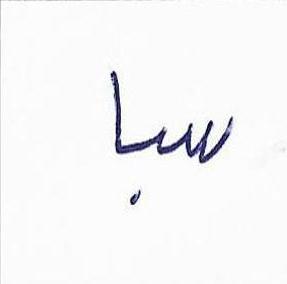 سبا